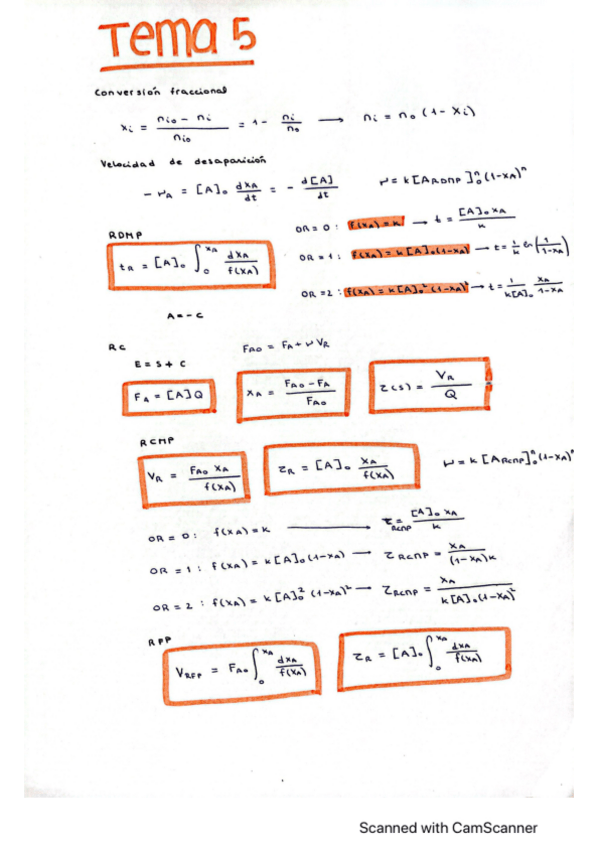 Tema 5
Conversión fraccional
xᵢ = (nᵢ₀ - nᵢ) / nᵢ₀ = 1 - nᵢ/n₀ → nᵢ = n₀ (1 - Xᵢ)
Velocidad de desaparición
- r_A = [A]₀ dx_A/dt = - d[A]/dt r = k[A_RDMP]₀ⁿ(1-x_A)ⁿ
OR = 0 : f(x_A) = k → t = [A]₀ x_A / k
RDMP
t_R = [A]₀ ∫₀^{x_A} dx_A / f(x_A)
OR = 1 : f(x_A) = k[A]₀(1-x_A) → t = 1/k ln(1/(1-x_A))
OR = 2 : f(x_A) = k[A]₀²(1-x_A)² → t = 1/(k[A]₀) x_A/(1-x_A)
A = - C
RC F_A₀ = F_A + r V_R
E = S + C
F_A = [A]Q x_A = (F_A₀ - F_A) / F_A₀ τ(s) = V_R / Q
RCMP
V_R = F_A₀ x_A / f(x_A) τ_R = [A]₀ x_A / f(x_A) r = k [A_RCMP]₀ⁿ(1-x_A)ⁿ
OR = 0 : f(x_A) = k → τ_RCMP = [A]₀ x_A / k
OR = 1 : f(x_A) = k[A]₀(1-x_A) → τ_RCMP = x_A / ((1-x_A)k)
OR = 2 : f(x_A) = k[A]₀² (1-x_A)² → τ_RCMP = x_A / (k[A]₀(1-x_A)²)
RFP
V_RFP = F_A₀ ∫₀^{x_A} dx_A / f(x_A) τ_R = [A]₀ ∫₀^{x_A} dx_A / f(x_A)
Scanned with CamScanner